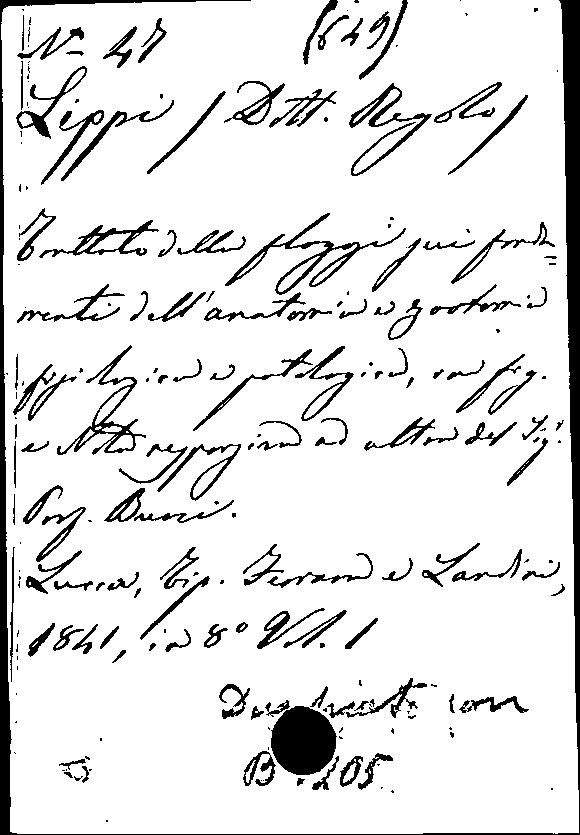 N.º 47 (649)
Lippi / Dott. Regolo /
Trattato della floggi sui fonda=
menti dell'anatomia e zootomia
fisiologica e patologica, con fig.
e Nota ad altra del Sig.
Prof. Bucci.
Lucca, Tip. Ferrara e Landini,
1841, in 8º Vol. 1
Duplicato con
B. 205